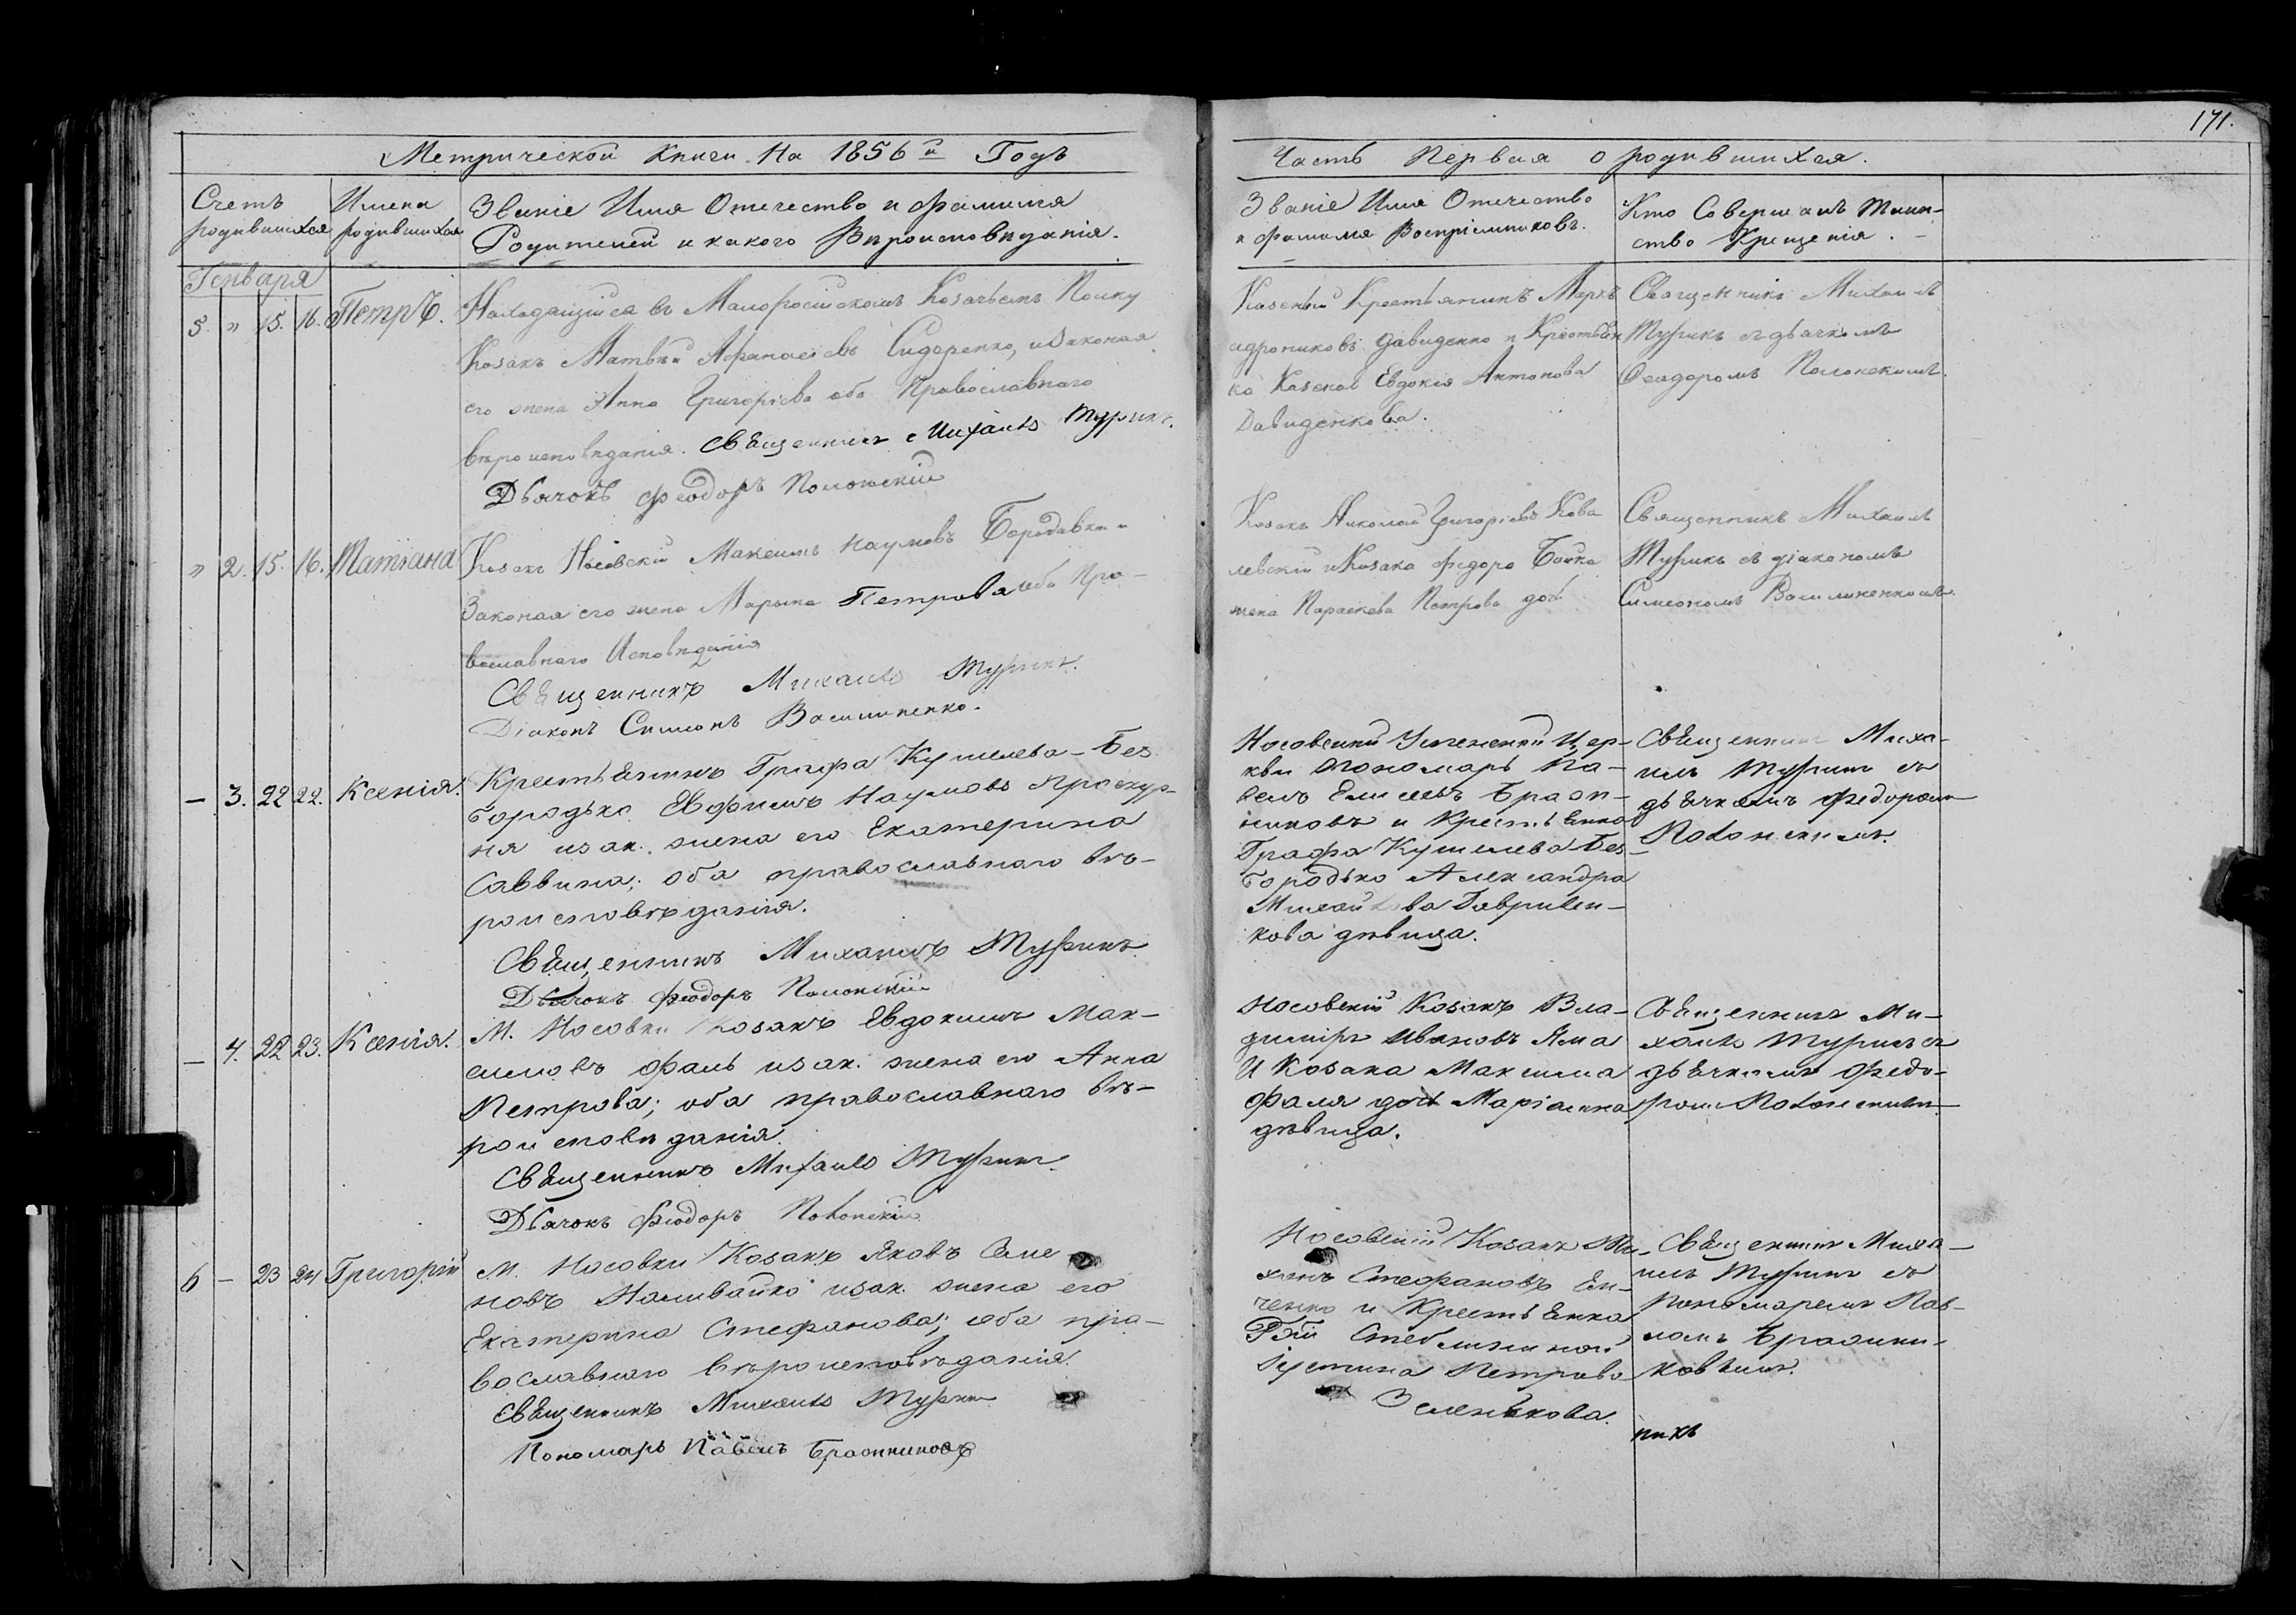 171.
Метрической Книги На 1856й Годъ
Часть Первая о родившихся.
Счетъ родившихся
Имена родившихся
Званіе Имя Отечество и Фамилія
Родителей и какого Вѣроисповѣданія.
Званіе Имя Отечество
и фамилія Воспріемниковъ.
Кто Совершалъ Таин-
ство Крещенія.
Генваря
5. " 15. 16. Петръ.
Находящійся въ Малоросійскомъ Козачьемъ Полку
Козакъ Матвѣй Афанасіевъ Сидоренко, и Законая
его жена Анна Григоріева оба Православнаго
вѣроисповѣданія. Священникъ Михаилъ Турикъ.
Дьячокъ Феодоръ Полонскій
Казеный Крестьянинъ Мерк
Давиденко и Крестьян
ка Казеная Евдокія Антонова
Давиденкова.
Священникъ Михаилъ
Турикъ съ дьячкомъ
Феодоромъ Полонскимъ.
" 2. 15. 16. Татіана
Козакъ Носовскій Максимъ Наумовъ Бородавка и
Законая его жена Марина Петрова оба Пра-
вославнаго Исповѣданія
Священникъ Михаилъ Турикъ.
Діаконъ Симеонъ Василиненко.
Козакъ Николай Григоріевъ Кова
левскій и Козака Федора Бойка
жена Параскева Петрова дочь
Священникъ Михаилъ
Турикъ съ діакономъ
Симеономъ Василиненкомъ.
— 3. 22 22. Ксенія.
Крестьянинъ Графа Кушелева-Без
бородько Евфимъ Наумовъ Проскур-
ня и зак. жена его Екатерина
Саввина; оба православнаго вѣ-
роисповѣданія.
Священникъ Михаилъ Турикъ
Дьячокъ Феодоръ Полонскій
Носовский Успенской Цер-
кви пономарь Па-
велъ Елисеевъ Браж-
никовъ и Крестьянка
Графа Кушелева Без-
бородько Александра
Михайлова Гаврилен-
кова дѣвица.
Священникъ Миха-
илъ Турикъ съ
дьячкомъ Федоромъ
Полонскимъ.
— 4. 22 23. Ксенія.
М. Носовки Козакъ Евдокимъ Мак-
симовъ Фаль и зак. жена его Анна
Петрова; оба православнаго вѣ-
роисповѣданія.
Священникъ Михаилъ Турикъ
Дьячокъ Феодоръ Полонскій
Носовскій Козакъ Вла-
димиръ Ивановъ Яма
И Козака Максима
Фаля дочь Маріанна
дѣвица.
Священникъ Ми-
хаилъ Турикъ съ
дьячкомъ Федо-
ромъ Полонскимъ
6 — 23 24 Григорій
М. Носовки Козакъ Яковъ Семе
новъ Наливайко и зак. жена его
Екатерина Стефанова; оба пра-
вославнаго вѣроисповѣданія.
Священникъ Михаилъ Турикъ
Пономарь Павелъ Бражниковъ
Носовскій Козакъ Ми-
Стефановъ Ен-
ченко и Крестьянка
Іустина Петрова
Зеленькова.
Священникъ Миха-
илъ Турикъ съ
Пономаремъ Пав-
ломъ Бражни-
ковымъ.
никъ